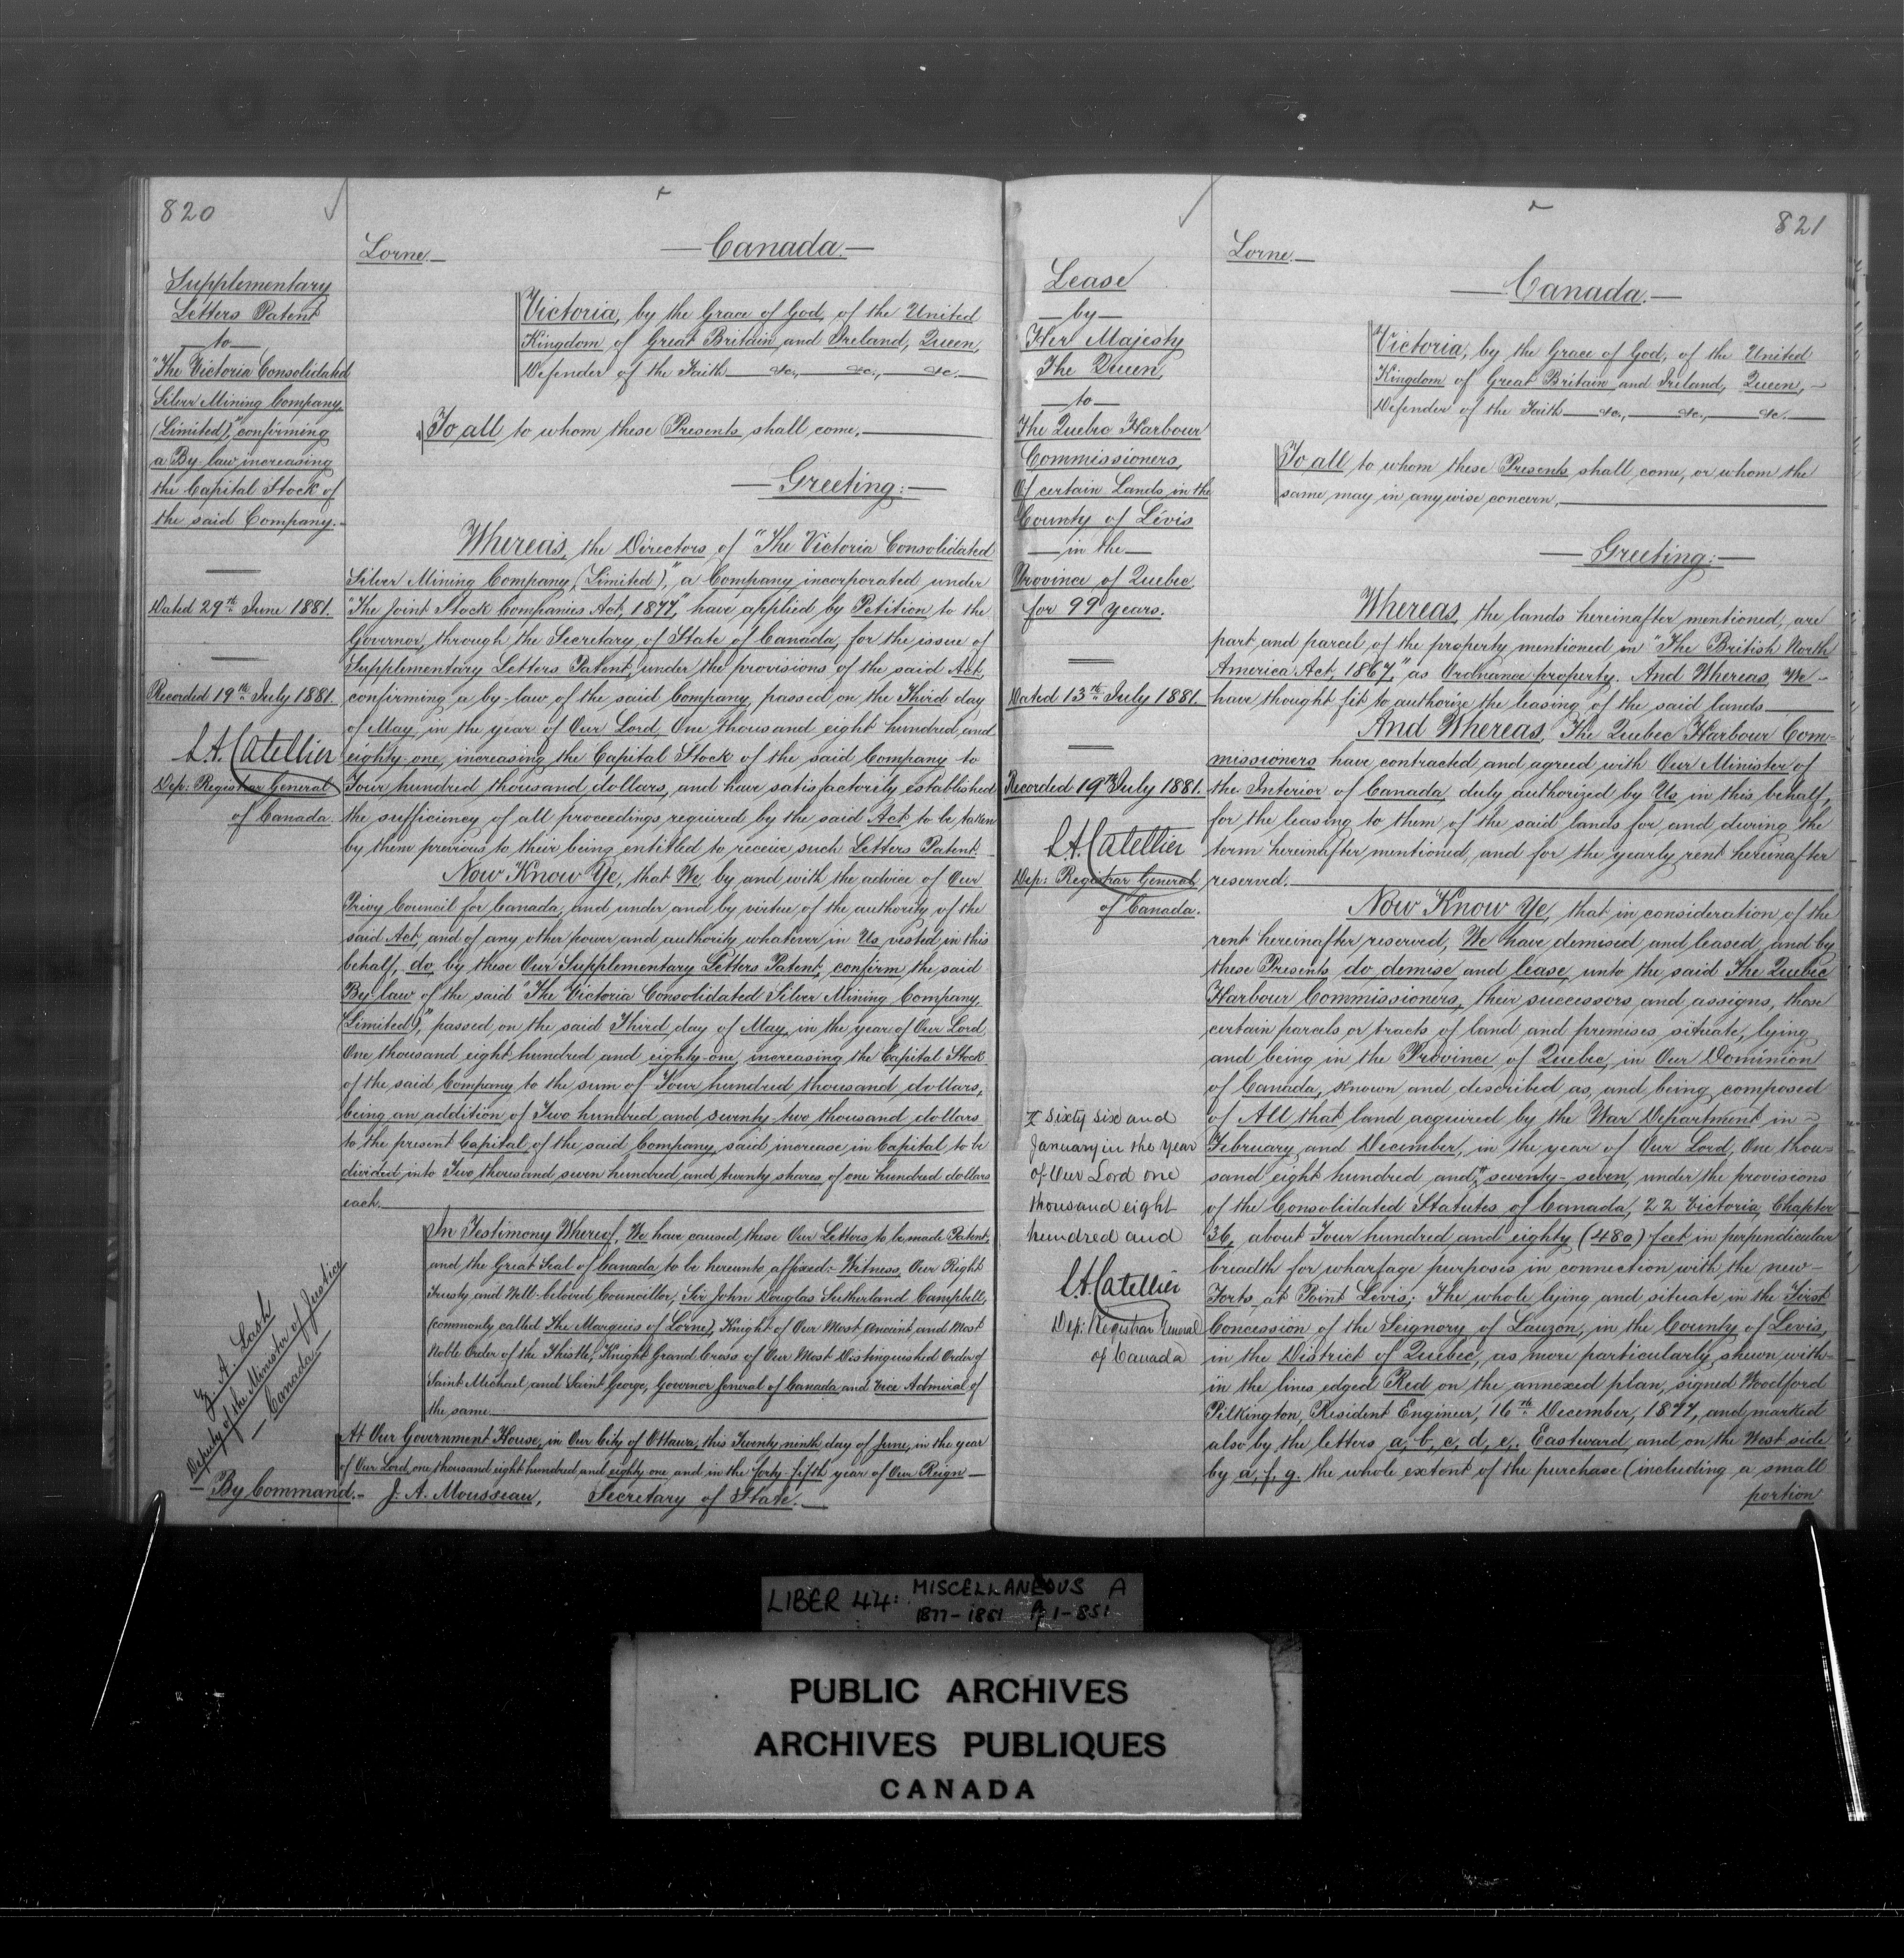 820
Supplementary
Letters Patent
—to—
"The Victoria Consolidated
Silver Mining Company,
(Limited)," confirming
a By-law increasing
the Capital Stock of
the said Company.-
Dated 29th June 1881.
Recorded 19th July 1881.
L.A. Catellier
Dep: Registrar General
of Canada.
Lorne.—
—Canada.—
Victoria, by the Grace of God, of the United
Kingdom of Great Britain and Ireland, Queen,
Defender of the Faith — &c., — &c., — &c. —
To all to whom these Presents shall come,—
—Greeting:—
Whereas, the Directors of "The Victoria Consolidated
Silver Mining Company, (Limited)," a Company incorporated under
"The Joint Stock Companies Act, 1877," have applied by Petition to the
Governor, through the Secretary of State of Canada, for the issue of
Supplementary Letters Patent, under the provisions of the said Act,
confirming a by-law of the said Company, passed on the Third day
of May, in the year of Our Lord, One thousand eight hundred and
eighty-one, increasing the Capital Stock of the said Company to
Four hundred thousand dollars, and have satisfactorily established
the sufficiency of all proceedings required by the said Act to be taken
by them previous to their being entitled to receive such Letters Patent.
Now Know Ye, that We, by and with the advice of Our
Privy Council for Canada, and under and by virtue of the authority of the
said Act, and of any other power and authority whatever in Us vested in this
behalf, do by these Our Supplementary Letters Patent, confirm the said
By-law of the said "The Victoria Consolidated Silver Mining Company,
(Limited)," passed on the said Third day of May, in the year of Our Lord
One thousand eight hundred and eighty-one, increasing the Capital Stock
of the said Company to the sum of Four hundred thousand dollars,
being an addition of Two hundred and seventy-two thousand dollars
to the present Capital of the said Company, said increase in Capital to be
divided into Two thousand seven hundred and twenty shares, of one hundred dollars
each.—
In Testimony Whereof, We have caused these Our Letters to be made Patent,
and the Great Seal of Canada to be hereunto affixed:- Witness, Our Right
Trusty and Well-beloved Councillor, Sir John Douglas Sutherland Campbell,
(commonly called The Marquis of Lorne), Knight of Our Most Ancient and Most
Noble Order of the Thistle, Knight Grand Cross of Our Most Distinguished Order of
Saint Michael and Saint George, Governor General of Canada and Vice Admiral of
the same—
At Our Government House, in Our City of Ottawa, this Twenty ninth day of June, in the year
of Our Lord, one thousand eight hundred and eighty one and in the forty-fifth year of Our Reign—
Z. A. Lash
Deputy of the Minister of Justice
—Canada.—
By Command.- J. A. Mousseau, Secretary of State.—
821
Lease
—by—
Her Majesty
The Queen,
—to—
The Quebec Harbour
Commissioners,
Of certain Lands in the
County of Lévis
—in the—
Province of Quebec
for 99 years.
Dated 13th July 1881.
Recorded 19th July 1881.
L.A. Catellier
Dep: Registrar General
of Canada.
x Sixty six and
January in the year
of Our Lord one
thousand eight
hundred and
L.A. Catellier
Dep: Registrar General
of Canada
Lorne.—
—Canada.—
Victoria, by the Grace of God, of the United
Kingdom of Great Britain and Ireland, Queen,—
Defender of the Faith — &c., — &c., — &c. —
To all to whom these Presents shall come, or whom the
same may in anywise concern,—
—Greeting:—
Whereas, the lands hereinafter mentioned, are
part and parcel of the property mentioned in "The British North
America Act, 1867," as Ordnance property. And Whereas, We-
have thought fit to authorize the leasing of the said lands—
And Whereas, The Quebec Harbour Com=
missioners have contracted and agreed with Our Minister of
the Interior of Canada, duly authorized by Us in this behalf,
for the leasing to them, of the said lands for and during the
term hereinafter mentioned, and for the yearly rent hereinafter
reserved.—
Now Know Ye, that in consideration of the
rent hereinafter reserved, We have demised and leased, and by
these Presents do demise and lease, unto the said The Quebec
Harbour Commissioners, their successors and assigns, those
certain parcels or tracts of land and premises, situate, lying
and being in the Province of Quebec, in Our Dominion
of Canada, known and described as, and being composed
of All that land acquired by the War Department in-
February and December, in the year of Our Lord, One thou=
sand eight hundred and x seventy-seven, under the provisions
of the Consolidated Statutes of Canada, 22 Victoria, Chapter
36, about Four hundred and eighty (480) feet in perpendicular
breadth for wharfage purposes in connection with the new-
Forts at Point Levis; The whole lying and situate in the First
Concession of the Seignory of Lauzon, in the County of Levis,
in the District of Quebec, as more particularly shewn with=
in the lines edged Red on the annexed plan, signed Woodford
Pilkington, Resident Engineer, 16th December, 1877, and marked
also by the letters a, b, c, d, e,. Eastward and on the West side
by a, f, g. the whole extent of the purchase (including a small
portion
LIBER 44: MISCELLANEOUS A
1877-1881 Pg 1-851
PUBLIC ARCHIVES
ARCHIVES PUBLIQUES
CANADA